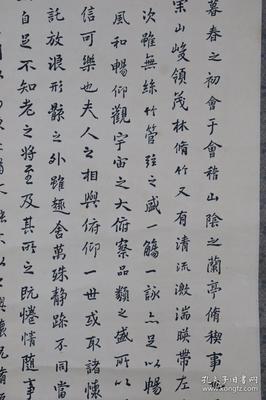 暮春之初會于會稽山陰之蘭亭脩稧事
崇山峻領茂林脩竹又有清流激湍暎帶左
次雖無絲竹管弦之盛一觴一詠亦足以暢
風和暢仰觀宇宙之大俯察品類之盛所以
信可樂也夫人之相與俯仰一世或取諸懷
託放浪形骸之外雖趣舍萬殊靜躁不同當
自足不知老之將至及其所之既惓情隨事
不以之興懷況脩
孔夫子旧书网